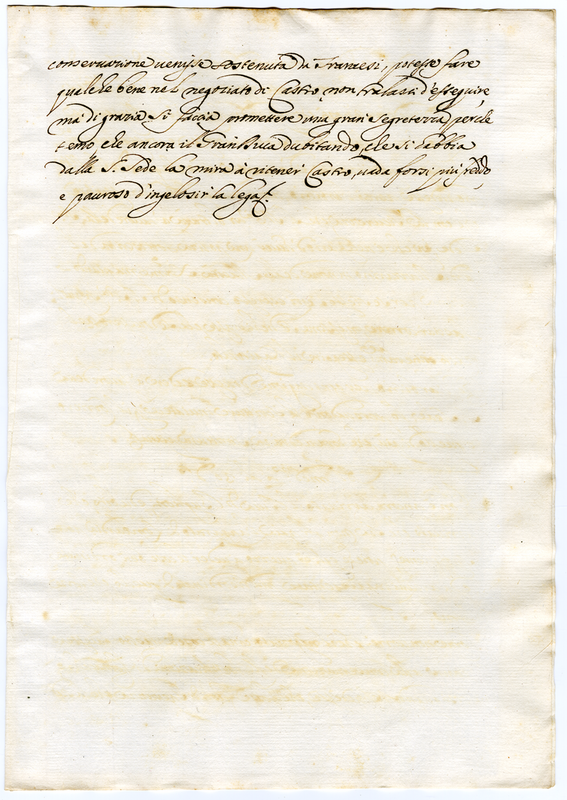 conseruazione uenisse sostenuta da Francesi, potesse fare
qualche bene nel negoziato di Castro, non tralasci d'esseguire,
mà di grazia si faccia promettere una gran segretezza, perche
temo, che ancora il Gran Duca dubitando, che si habbia
dalla S. Sede la mira à ritener Castro, uada forsi più
e pauroso d'ingelosir la lega.